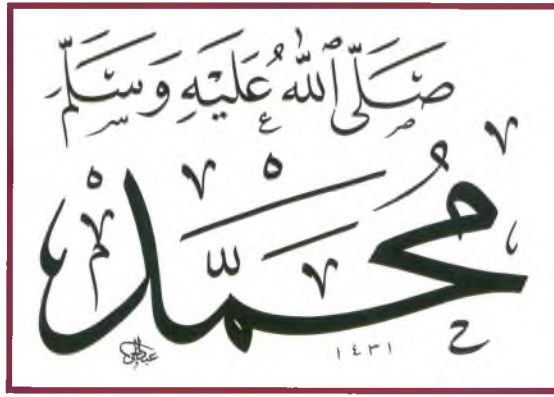 صَلَّى ٱللّٰهُ عَلَيْهِ وَسَلَّمَ
مُحَمَّد
١٤٣١